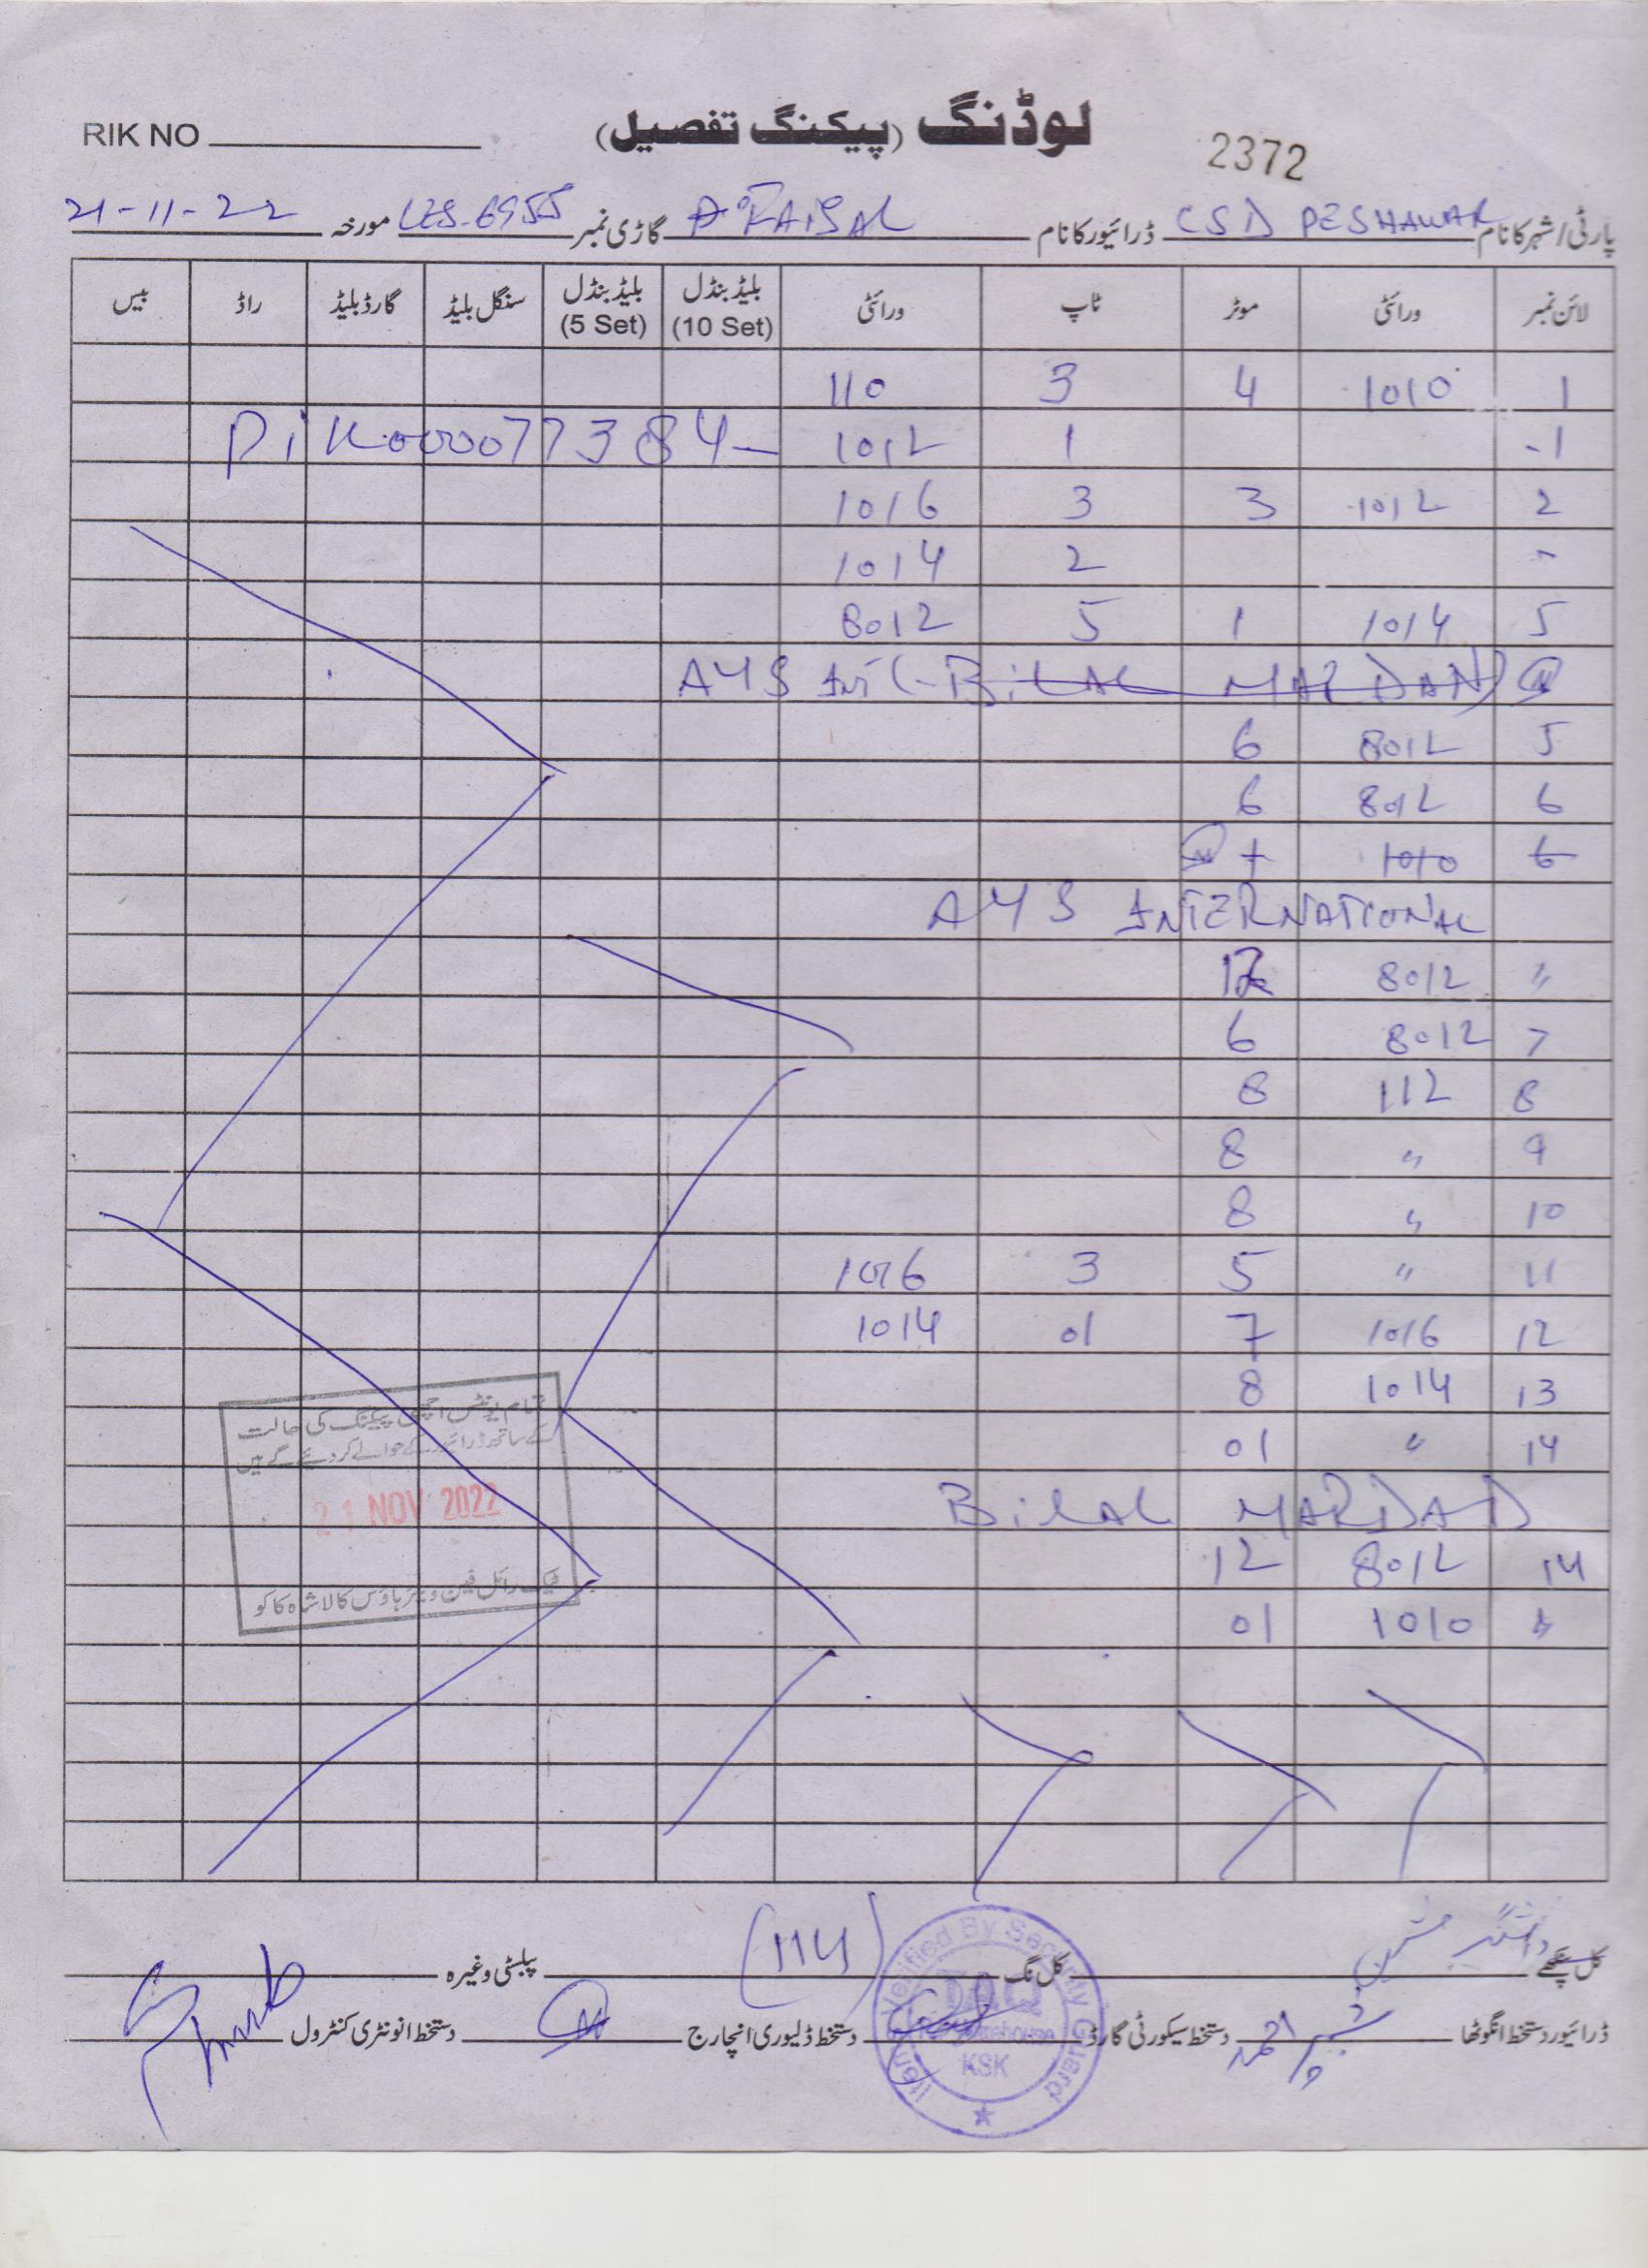 RIK NO
لوڈنگ (پیکنگ تفصیل)
2372
پارٹی/شہر کا نام CSD PESHAWAR ڈرائیور کا نام FAISAL گاڑی نمبر LES-6955 مورخہ 21-11-22
لائن نمبر ورائٹی موٹر ٹاپ ورائٹی بلیڈ بنڈل (10 Set) بلیڈ بنڈل (5 Set) سنگل بلیڈ گارڈ بلیڈ راڈ بیس
1 1010 4 3 110
-1 1 1012 PiK0000077384-
2 1012 3 3 1016
- 2 1014
5 1014 1 5 8012
AYS Int (-BILAL MARDAN)
5 8012 6
6 8012 6
6 1010 1
AYS INTERNATIONAL
" 8012 12
7 8012 6
8 112 8
9 " 8
10 " 8
11 " 5 3 1016
12 1016 7 01 1014
13 1014 8
14 " 01
BiLAL MARDAN
14 8012 12
1010 01
تمام یونٹس اچھی پیکنگ کی حالت
کے ساتھ ڈرائیور کے حوالے کر دیئے گئے ہیں
21 NOV 2022
رائل فین ویئر ہاؤس کالا شاہ کاکو
کل پنکھے کل نگ (114) پبلسٹی وغیرہ
ڈرائیور دستخط انگوٹھا شبیر احمد دستخط سیکورٹی گارڈ دستخط ڈلیوری انچارج دستخط انوینٹری کنٹرول
Verified By Security Guard
Warehouse
KSK